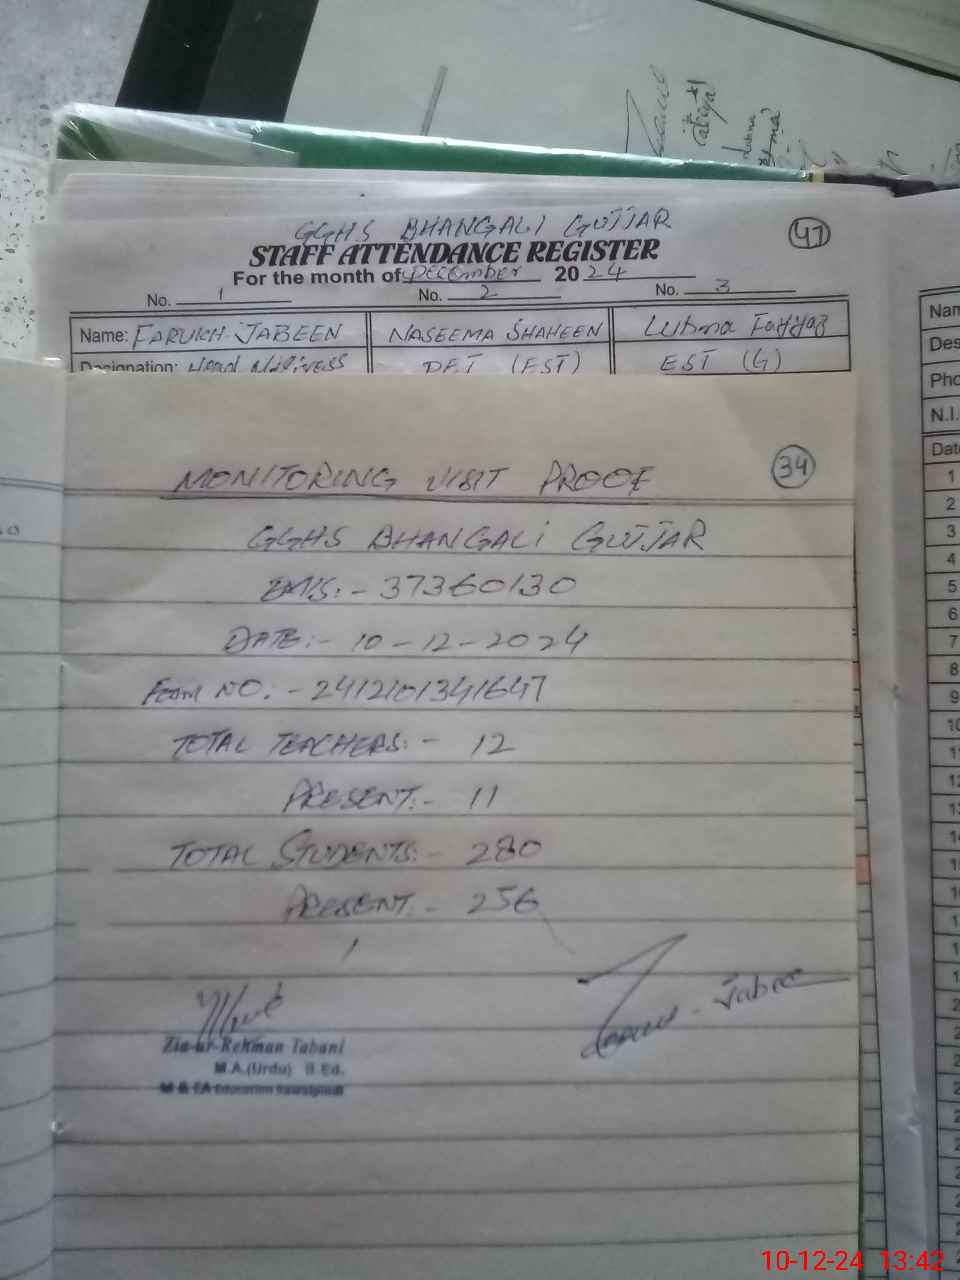 GGHS BHANGALI GUJJAR
47
STAFF ATTENDANCE REGISTER
For the month of December 2024
No. 1 No. 2 No. 3
Name: FARUKH JABEEN NASEEMA SHAHEEN Lubna Fayyaz
Designation: Head Mistress PET (EST) EST (G)
MONITORING VISIT PROOF
34
GGHS BHANGALI GUJJAR
EMIS:- 37360130
DATE:- 10-12-2024
FORM NO:- 2412101341647
TOTAL TEACHERS:- 12
PRESENT:- 11
TOTAL STUDENTS:- 280
PRESENT:- 256
Jabee
Zia-ur-Rehman Tabani
M.A.(Urdu) B.Ed.
M & EA Education Rawalpindi
Nam
Des
Pho
N.I.
Date
1
2
3
4
5
6
7
8
9
10
11
12
13
14
10-12-24 13:42